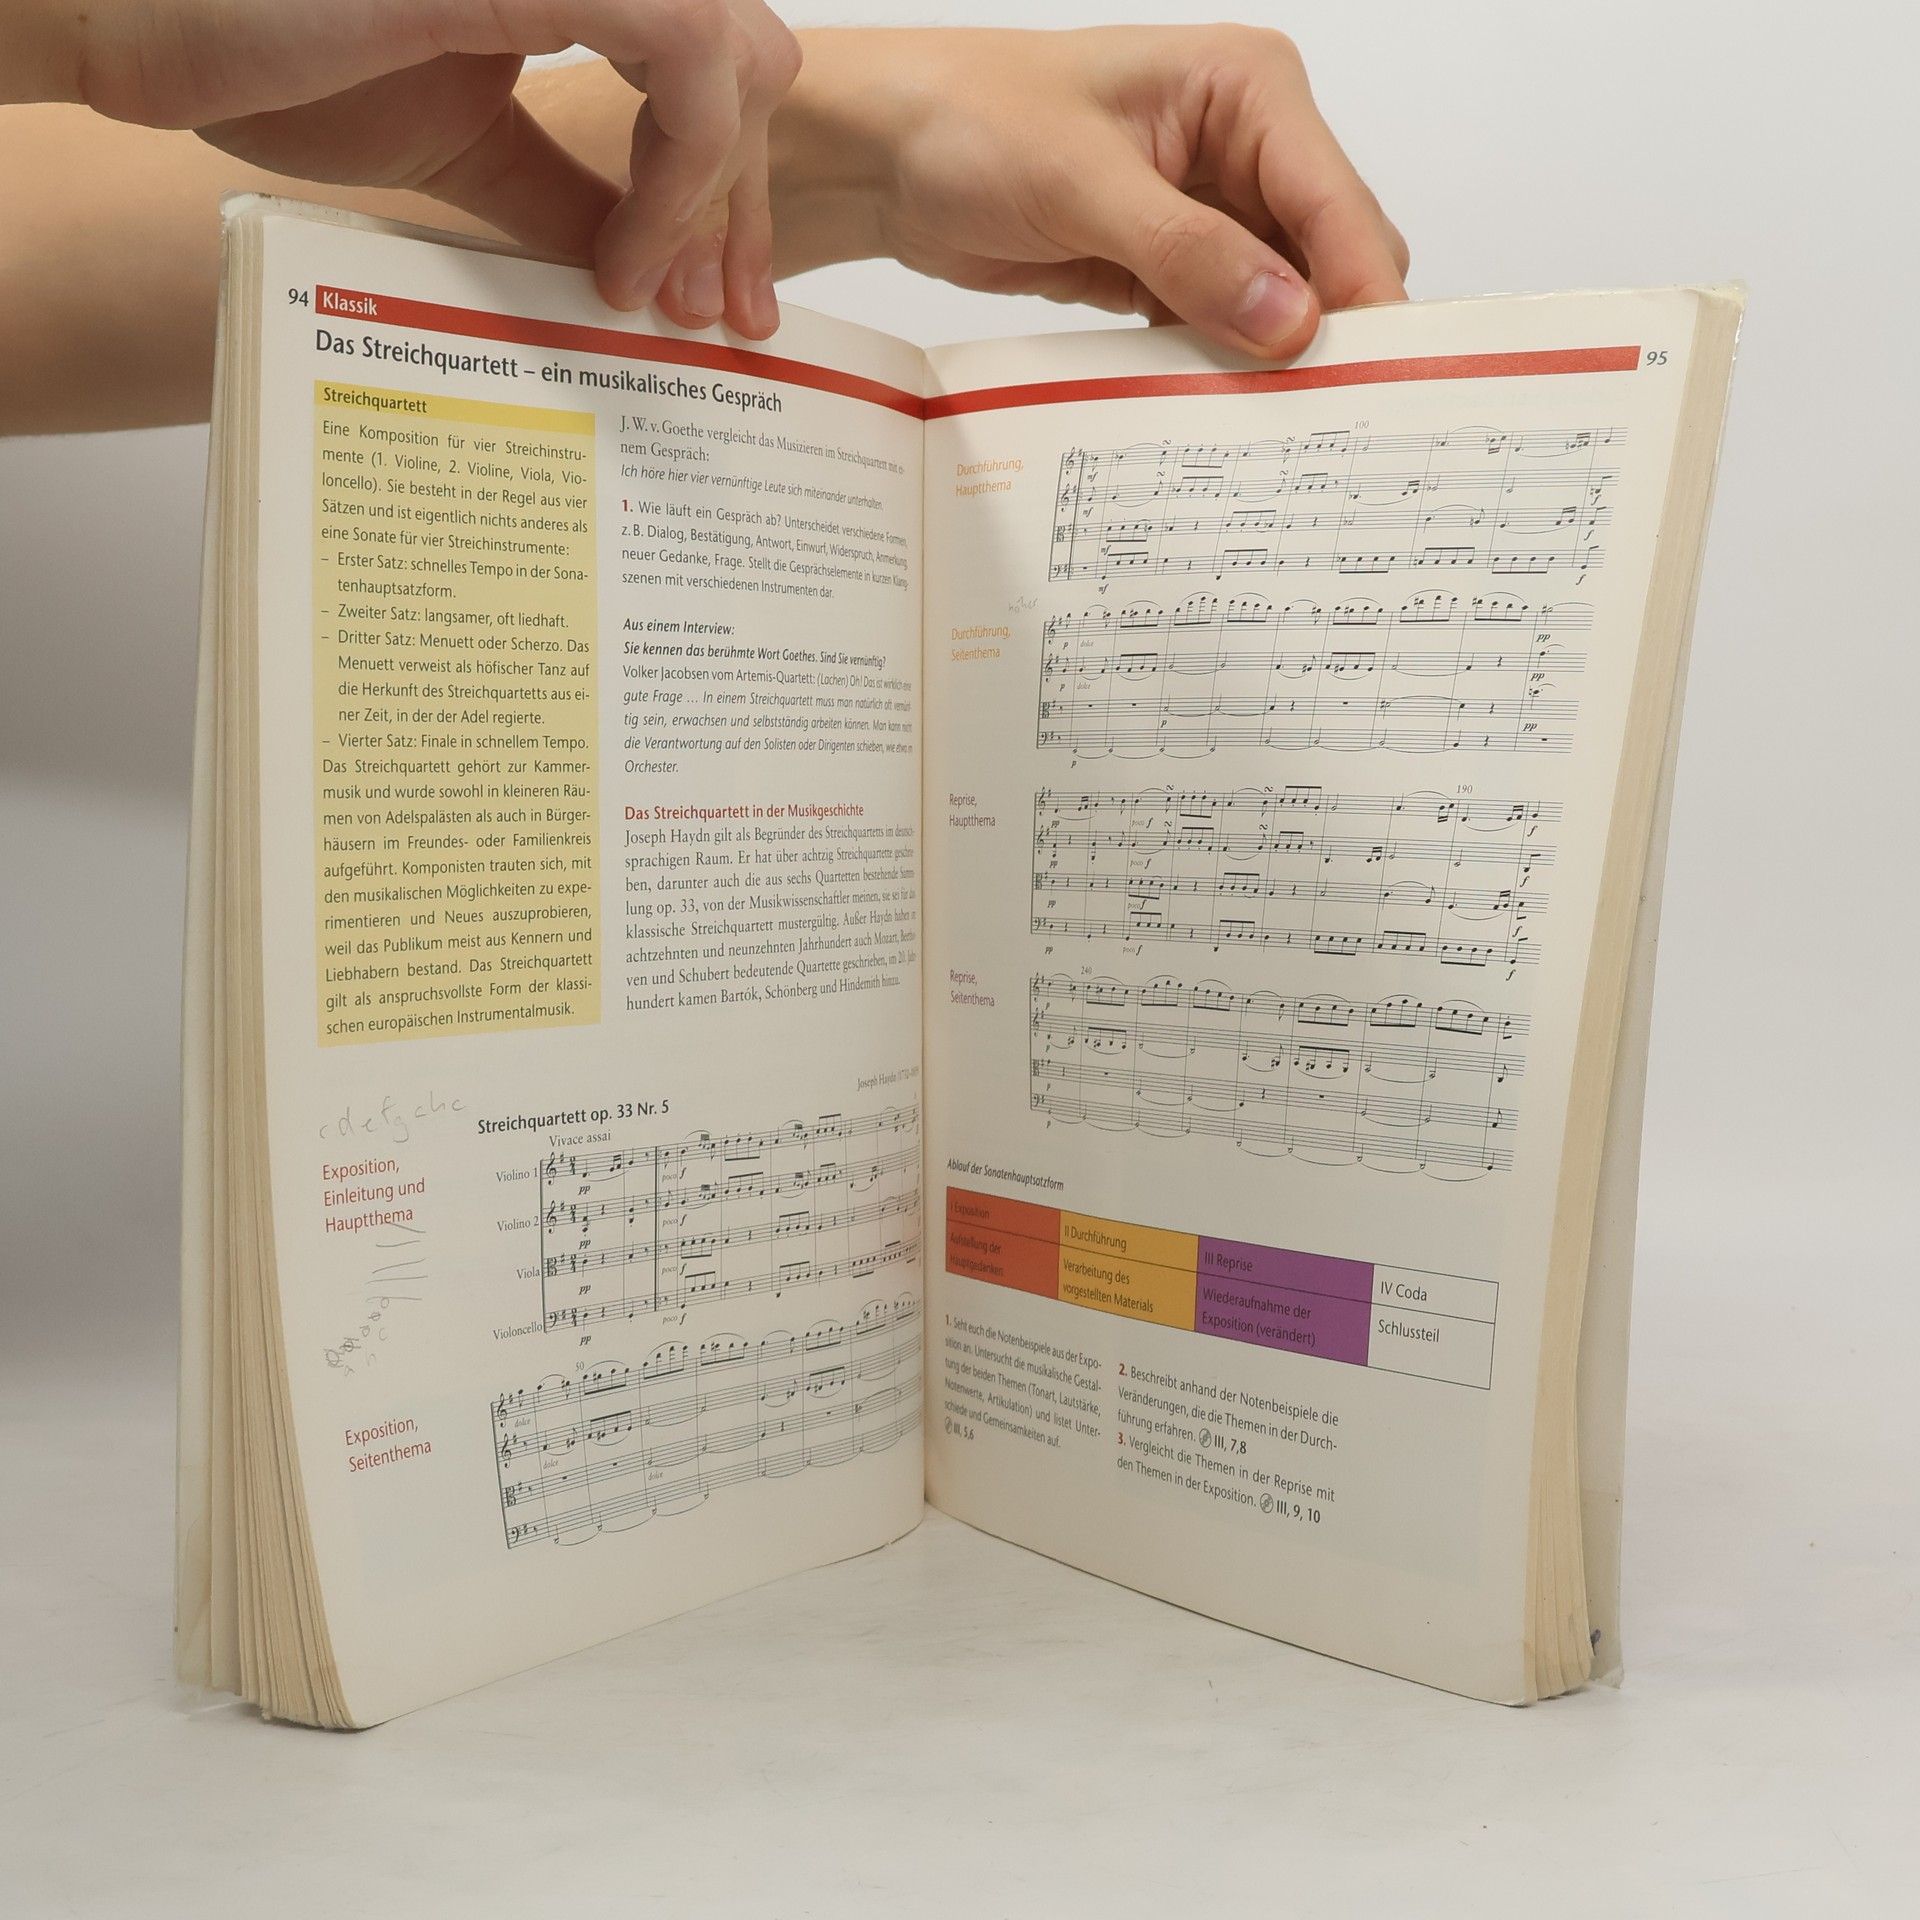 94 Klassik
Das Streichquartett – ein musikalisches Gespräch
Streichquartett
Eine Komposition für vier Streichinstru-
mente (1. Violine, 2. Violine, Viola, Vio-
loncello). Sie besteht in der Regel aus vier
Sätzen und ist eigentlich nichts anderes als
eine Sonate für vier Streichinstrumente:
– Erster Satz: schnelles Tempo in der Sona-
tenhauptsatzform.
– Zweiter Satz: langsamer, oft liedhaft.
– Dritter Satz: Menuett oder Scherzo. Das
Menuett verweist als höfischer Tanz auf
die Herkunft des Streichquartetts aus ei-
ner Zeit, in der der Adel regierte.
– Vierter Satz: Finale in schnellem Tempo.
Das Streichquartett gehört zur Kammer-
musik und wurde sowohl in kleineren Räu-
men von Adelspalästen als auch in Bürger-
häusern im Freundes- oder Familienkreis
aufgeführt. Komponisten trauten sich, mit
den musikalischen Möglichkeiten zu expe-
rimentieren und Neues auszuprobieren,
weil das Publikum meist aus Kennern und
Liebhabern bestand. Das Streichquartett
gilt als anspruchsvollste Form der klassi-
schen europäischen Instrumentalmusik.
J. W. v. Goethe vergleicht das Musizieren im Streichquartett mit ei-
nem Gespräch:
Ich höre hier vier vernünftige Leute sich miteinander unterhalten.
1. Wie läuft ein Gespräch ab? Unterscheidet verschiedene Formen,
z. B. Dialog, Bestätigung, Antwort, Einwurf, Widerspruch, Anmerkung,
neuer Gedanke, Frage. Stellt die Gesprächselemente in kurzen Klang-
szenen mit verschiedenen Instrumenten dar.
Aus einem Interview:
Sie kennen das berühmte Wort Goethes. Sind Sie vernünftig?
Volker Jacobsen vom Artemis-Quartett: (Lachen) Oh! Das ist wirklich eine
gute Frage … In einem Streichquartett muss man natürlich oft vernünf-
tig sein, erwachsen und selbstständig arbeiten können. Man kann nicht
die Verantwortung auf den Solisten oder Dirigenten schieben, wie etwa im
Orchester.
Das Streichquartett in der Musikgeschichte
Joseph Haydn gilt als Begründer des Streichquartetts im deutsch-
sprachigen Raum. Er hat über achtzig Streichquartette geschrie-
ben, darunter auch die aus sechs Quartetten bestehende Samm-
lung op. 33, von der Musikwissenschaftler meinen, sie sei für das
klassische Streichquartett mustergültig. Außer Haydn haben im
achtzehnten und neunzehnten Jahrhundert auch Mozart, Beetho-
ven und Schubert bedeutende Quartette geschrieben, im 20. Jahr-
hundert kamen Bartók, Schönberg und Hindemith hinzu.
Joseph Haydn
cdefgahc
Streichquartett op. 33 Nr. 5
Vivace assai
Exposition,
Einleitung und
Hauptthema
Violino 1
pp
poco f
Violino 2
pp
poco f
Viola
pp
poco f
Violoncello
pp
poco f
Exposition,
Seitenthema
50
dolce
dolce
dolce
95
Durchführung,
Hauptthema
100
mf
mf
mf
mf
f
f
f
höher
Durchführung,
Seitenthema
p dolce
p dolce
p
p
pp
pp
pp
Reprise,
Hauptthema
190
pp poco f f
pp poco f f
pp poco f f
pp poco f f
Reprise,
Seitenthema
240
p
p
p
p
Ablauf der Sonatenhauptsatzform
I Exposition
Aufstellung der
Hauptgedanken
II Durchführung
Verarbeitung des
vorgestellten Materials
III Reprise
Wiederaufnahme der
Exposition (verändert)
IV Coda
Schlussteil
1. Seht euch die Notenbeispiele aus der Expo-
sition an. Untersucht die musikalische Gestal-
tung der beiden Themen (Tonart, Lautstärke,
Notenwerte, Artikulation) und listet Unter-
schiede und Gemeinsamkeiten auf.
III, 5,6
2. Beschreibt anhand der Notenbeispiele die
Veränderungen, die die Themen in der Durch-
führung erfahren. III, 7,8
3. Vergleicht die Themen in der Reprise mit
den Themen in der Exposition. III, 9, 10